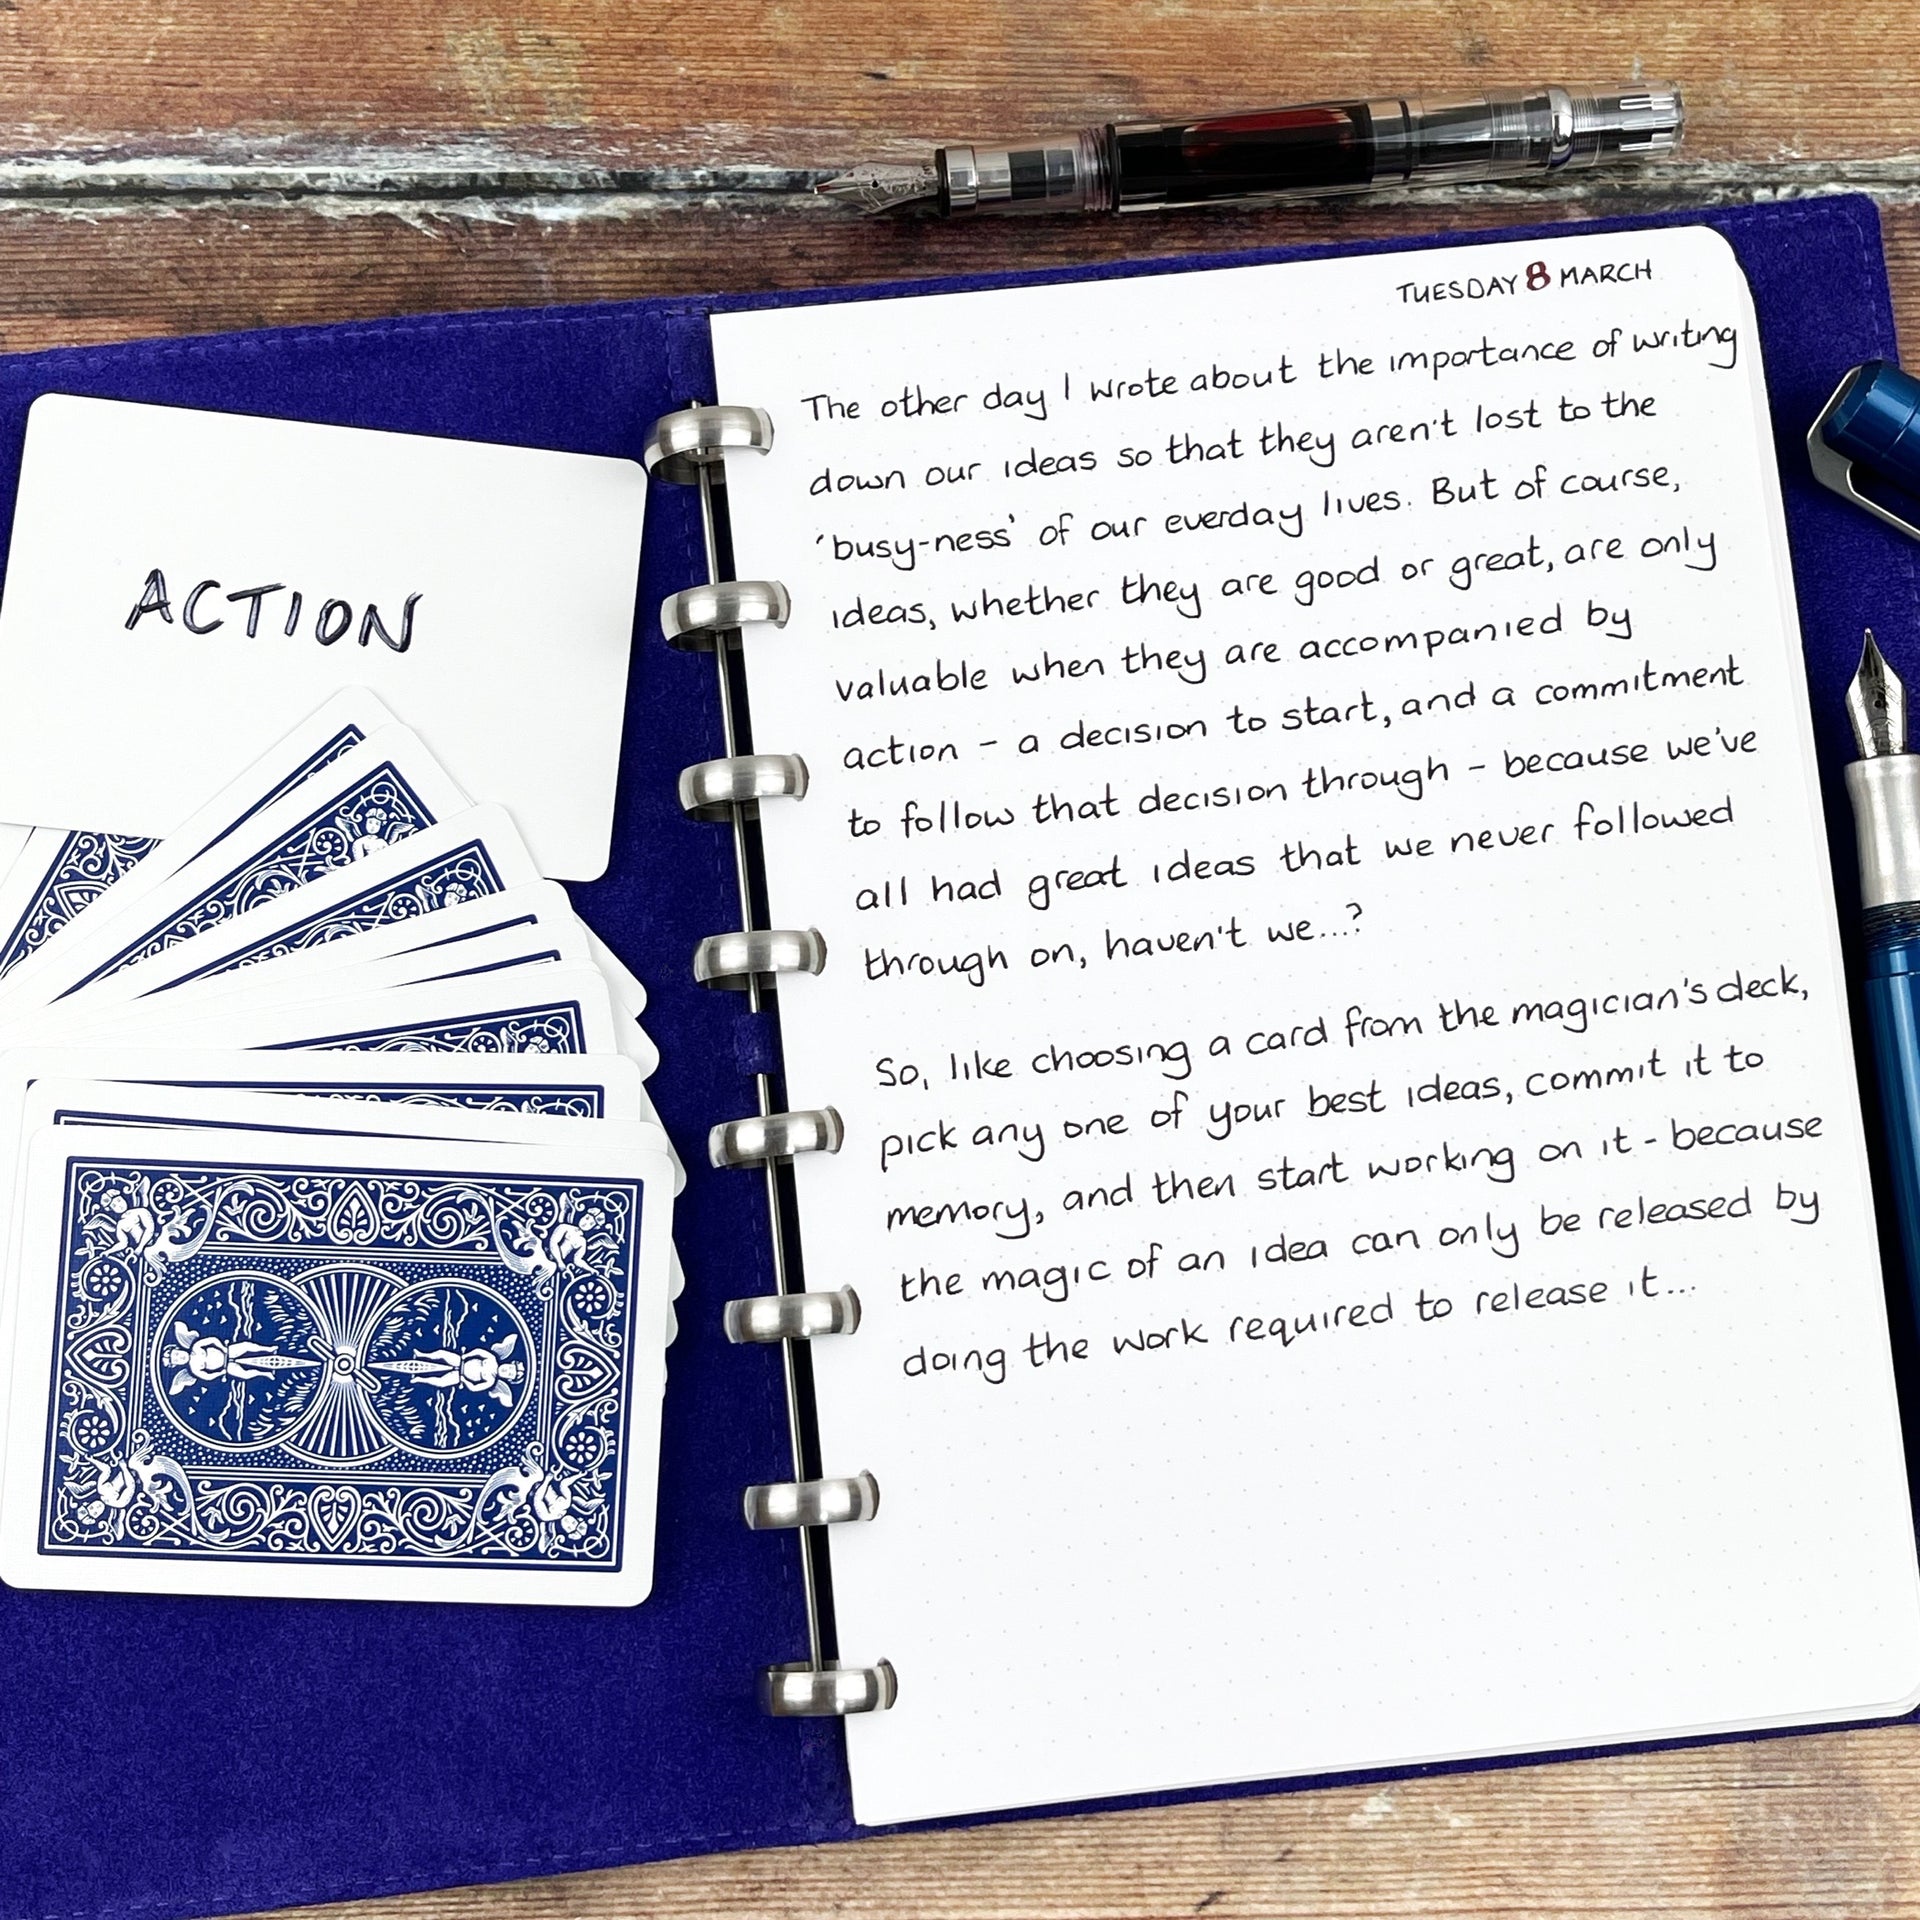 ACTION
TUESDAY 8 MARCH
The other day I wrote about the importance of writing
down our ideas so that they aren't lost to the
'busy-ness' of our everday lives. But of course,
ideas, whether they are good or great, are only
valuable when they are accompanied by
action - a decision to start, and a commitment
to follow that decision through - because we've
all had great ideas that we never followed
through on, haven't we...?
So, like choosing a card from the magician's deck,
pick any one of your best ideas, commit it to
memory, and then start working on it - because
the magic of an idea can only be released by
doing the work required to release it...